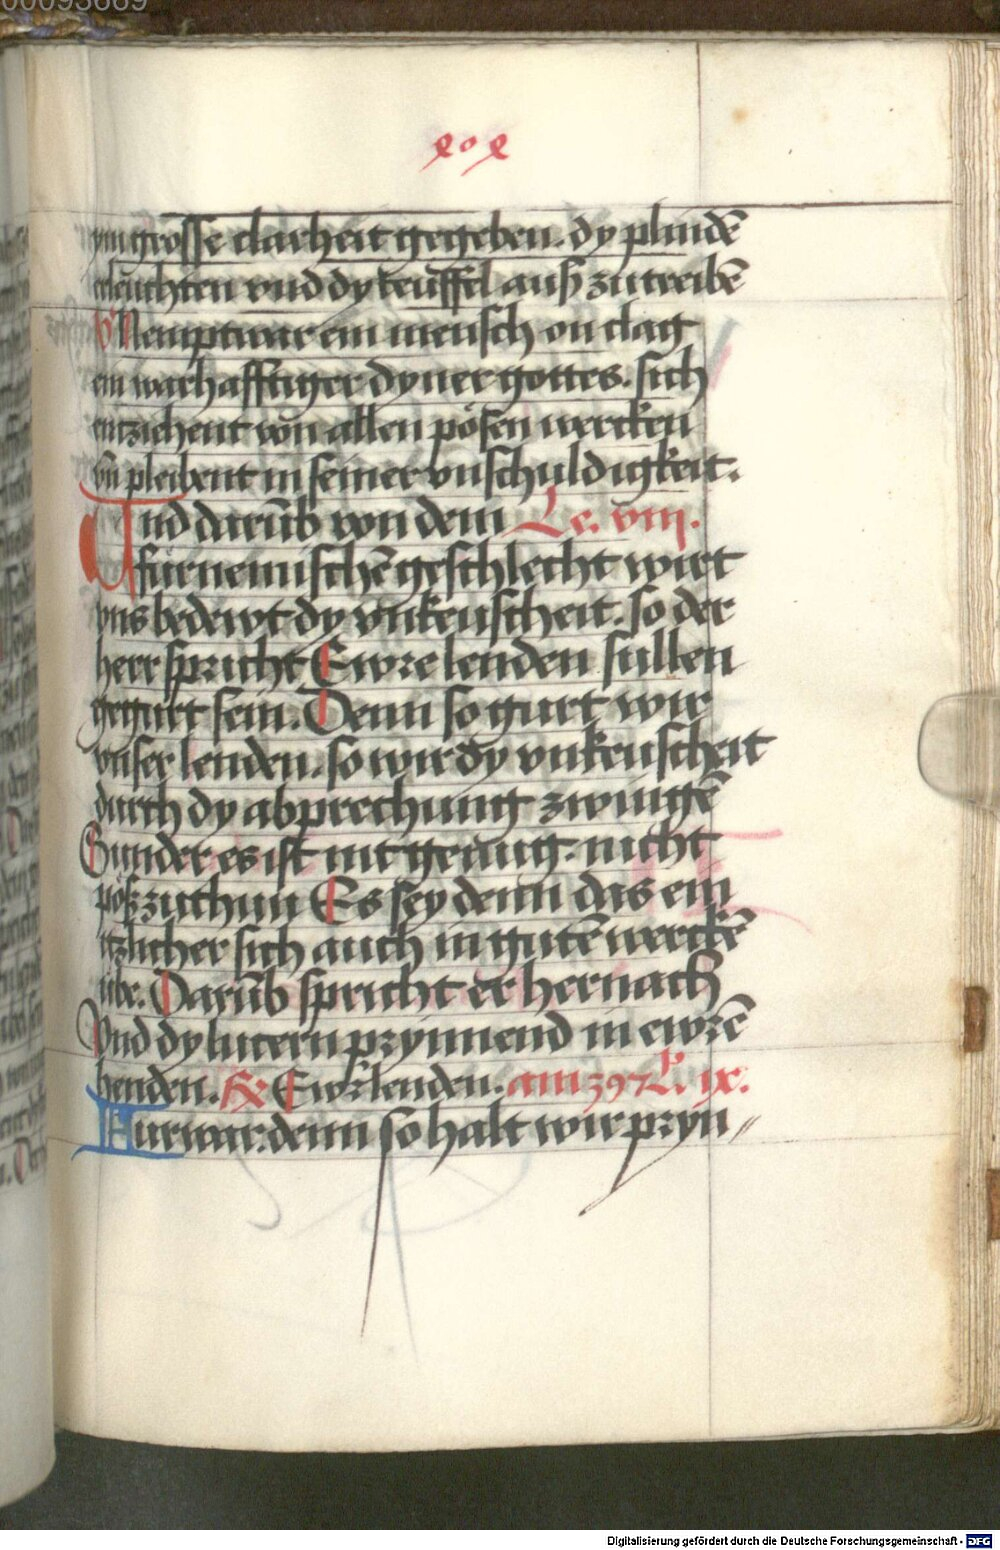 ym grosse clarheit gegeben. dy plindē
erleuchten vnd dy teuffel auß zutreibē
V Nempt war ein mensch on clag
ein warhafftiger dyner gottes. sich
entzichent von allen pösen wercken
vn̄ pleibent in seiner vnschuldigkeit.
Vnd darūb von dem Lc. viij.
fürnemischē geschlecht wirt
vns bedewt dy vnkeuscheit. so der
herr spricht Ewre lenden süllen
gegürt sein. Denn so gurt wir
vnser lenden. so wir dy vnkeuscheit
durch dy abprechung zwingē
Sunder es ist nit genug. nicht
pöß zuthun Es sey denn das ein
itzlicher sich auch in gutē wercke̅
übe. Darūb spricht er hernach
Vnd dy lucern prynnend in ewrē
henden. Ewr lenden. am 397 L. ix.
Furwar. denn so halt wir pryn //
Digitalisierung gefördert durch die Deutsche Forschungsgemeinschaft - DFG